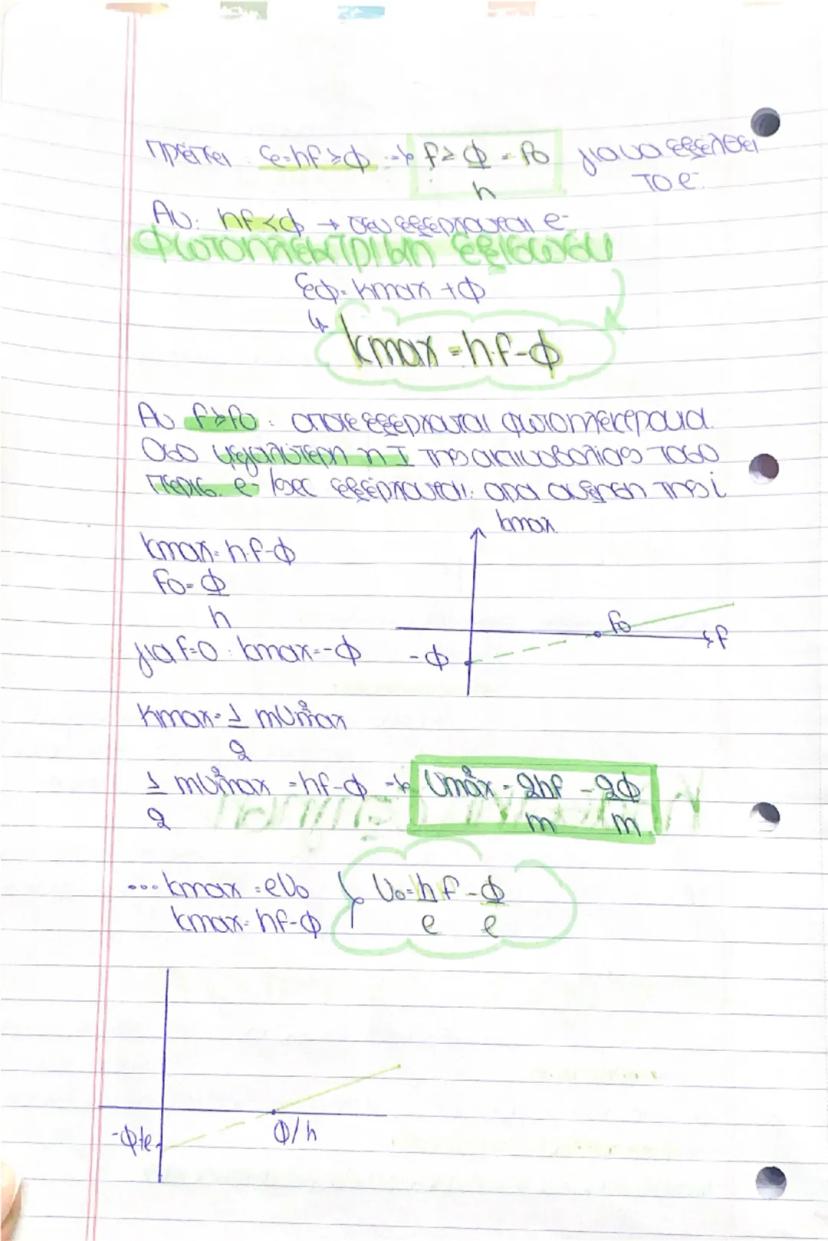 Πρέπει ε=hf≥φ → f≥ φ/h = f0 για να εξέλθει
το e-
Αν: hf<φ → δεν εξέρχονται e-
Φωτοηλεκτρική εξίσωση
εφ=Kmax+φ
↳ Kmax=h·f-φ
Αν f≥f0: οποτε εξέρχονται φωτοηλεκτρονια.
Οσο μεγαλύτερη η I της ακτινοβολίας τοσο
περισ. e-/sec εξέρχονται. αρα αυξηση της i
Kmax
Kmax=hf-φ
f0=φ/h
f0
f
για f=0: Kmax=-φ
-φ
Kmax=1/2 mU²max
1/2 mU²max =hf-φ → U²max = 2hf/m - 2φ/m
... Kmax=eV0
Kmax=hf-φ
V0=h/e f - φ/e
-φ/e
φ/h